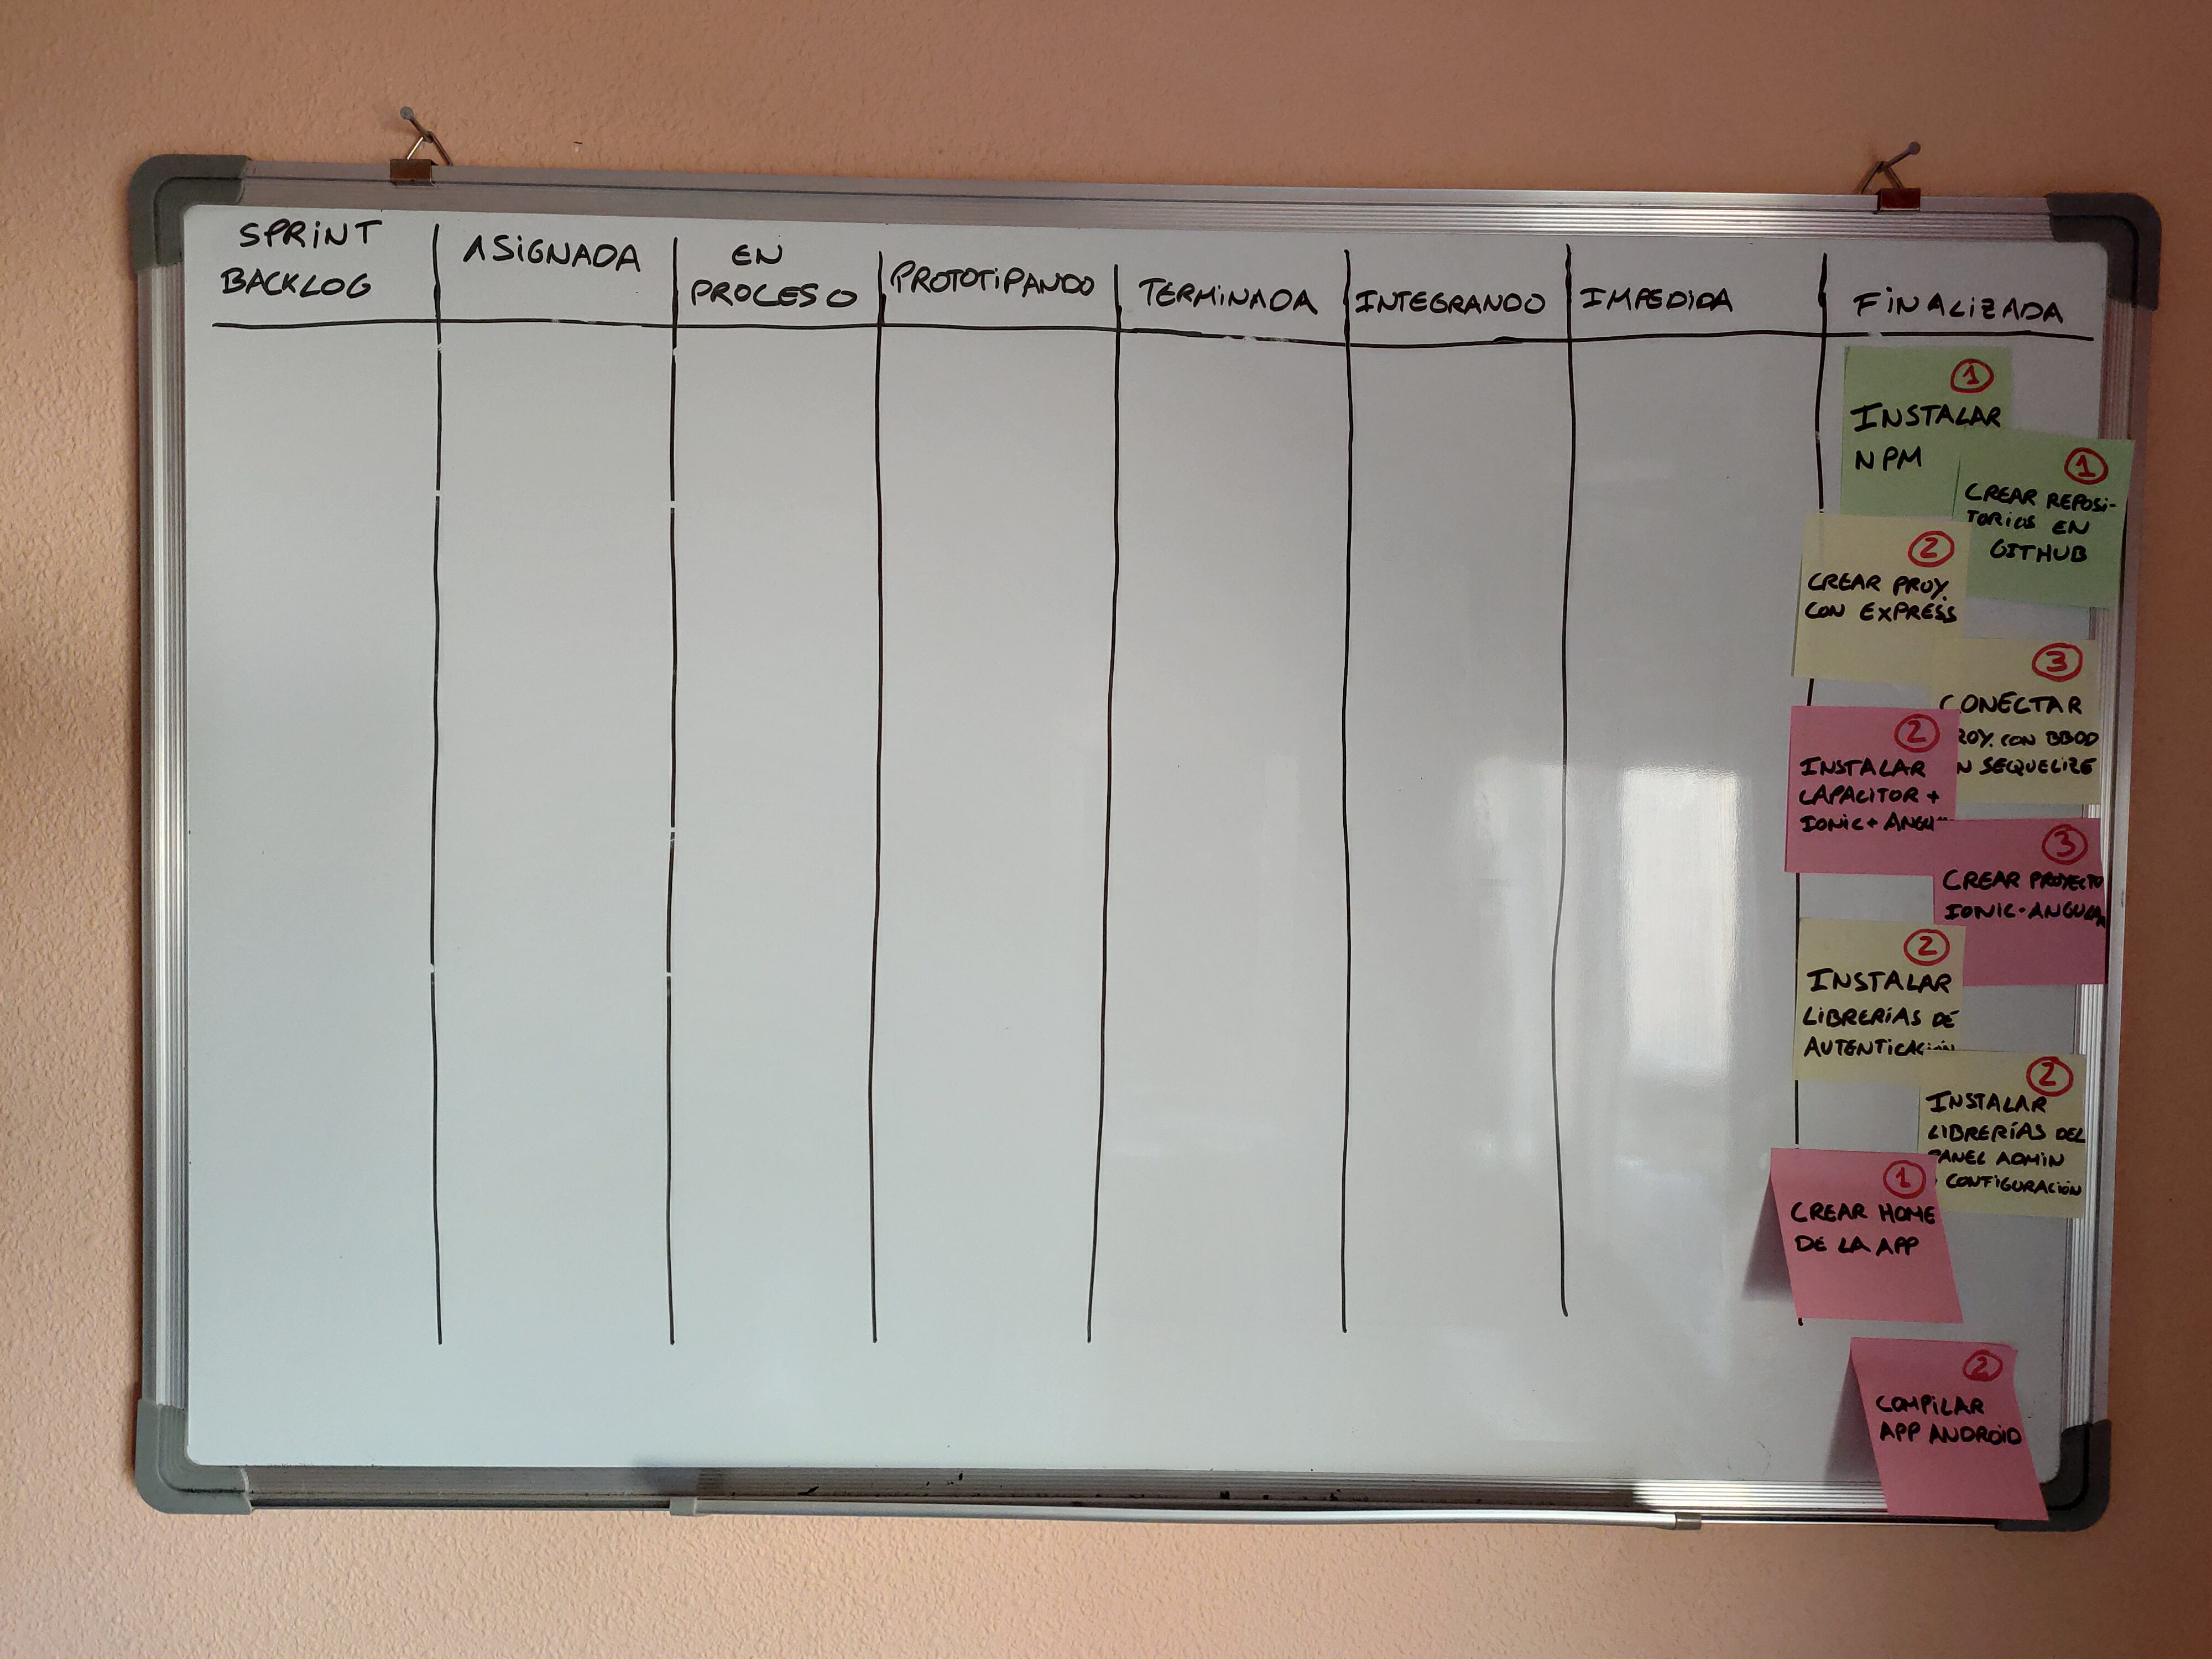 SPRINT
BACKLOG
ASIGNADA
EN
PROCESO
PROTOTIPANDO
TERMINADA
INTEGRANDO
IMPEDIDA
FINALIZADA
1
INSTALAR
NPM
1
CREAR REPOSI-
TORIOS EN
GITHUB
2
CREAR PROY.
CON EXPRESS
3
CONECTAR
ROY. CON BBDD
N SEQUELIZE
2
INSTALAR
CAPACITOR +
IONIC + ANGU
3
CREAR PROYECTO
IONIC-ANGULAR
2
INSTALAR
LIBRERÍAS DE
AUTENTICACIÓN
2
INSTALAR
LIBRERÍAS DEL
PANEL ADMIN
CONFIGURACIÓN
1
CREAR HOME
DE LA APP
2
COMPILAR
APP ANDROID